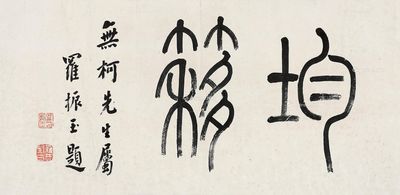 均簃
無柯先生屬
羅振玉題